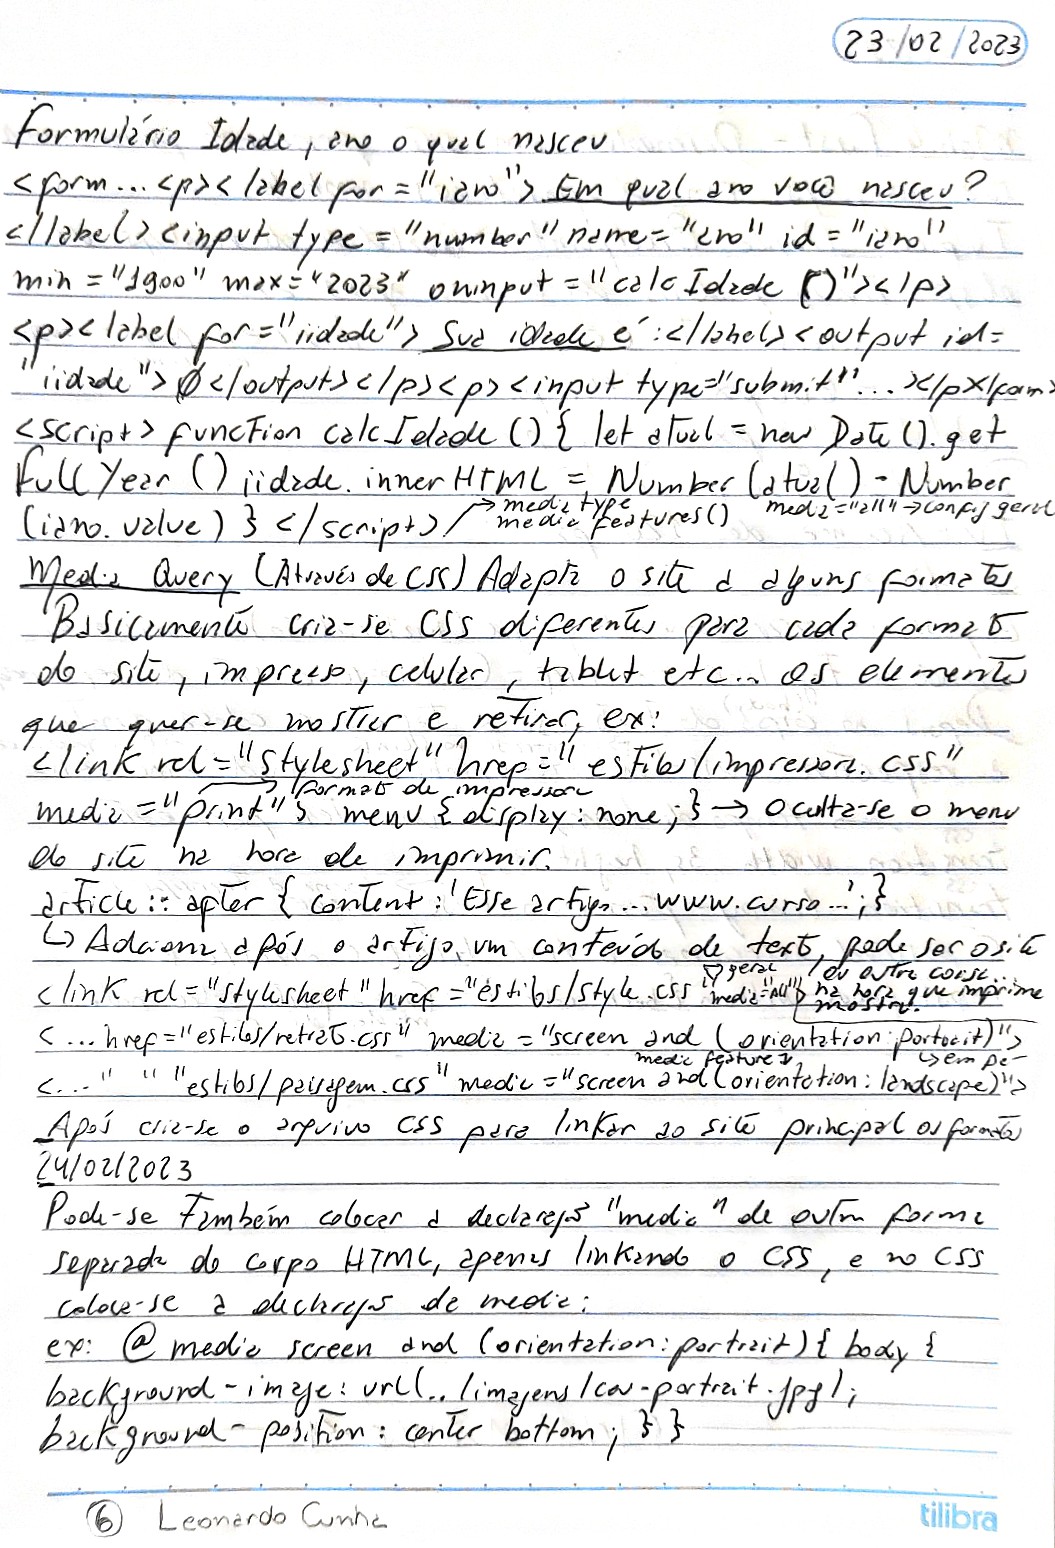 23/02/2023
Formulário Idade, ano o qual nasceu
<form...<p><label for="iano"> Em qual ano você nasceu?
</label><input type="number" name="ano" id="iano"
min="1900" max="2023" oninput="calcIdade()"></p>
<p><label for="iidade"> Sua idade é:</label><output id=
"iidade">0</output></p><p><input type="submit"...></p></form>
<script> function calcIdade() { let atual = new Date().get
FullYear() iidade.innerHTML = Number(atual) - Number
(iano.value) } </script>
media type
media features()
media="all"→config geral
Media Query (Através de CSS) Adapta o site a alguns formatos
Basicamente cria-se CSS diferentes para cada formato
do site, impresso, celular, tablet etc... os elementos
que quer-se mostrar e retirar, ex:
<link rel="stylesheet" href="estilos/impressora.css"
formato de impressora
media="print"> menu {display: none;} → Oculta-se o menu
do site na hora de imprimir.
article::after { content: 'Esse artigo...www.curso...';}
↳ Adiciona após o artigo, um conteúdo de texto, pode ser o site
ou outra coisa...
na hora que imprime
mostra.
geral
<link rel="stylesheet" href="estilos/style.css" media="all">
<...href="estilos/retrato.css" media="screen and (orientation:portrait)">
media feature
↳em pé
<..." " "estilos/paisagem.css" media="screen and (orientation: landscape)">
Após cria-se o arquivo CSS para linkar ao site principal os formatos
24/02/2023
Pode-se também colocar a declaração "media" de outra forma
separada do corpo HTML, apenas linkando o CSS, e no CSS
coloca-se a declaração de media:
ex: @media screen and (orientation:portrait) { body {
background-image: url(../imagens/cav-portrait.jpg);
background-position: center bottom; } }
6 Leonardo Cunha
tilibra